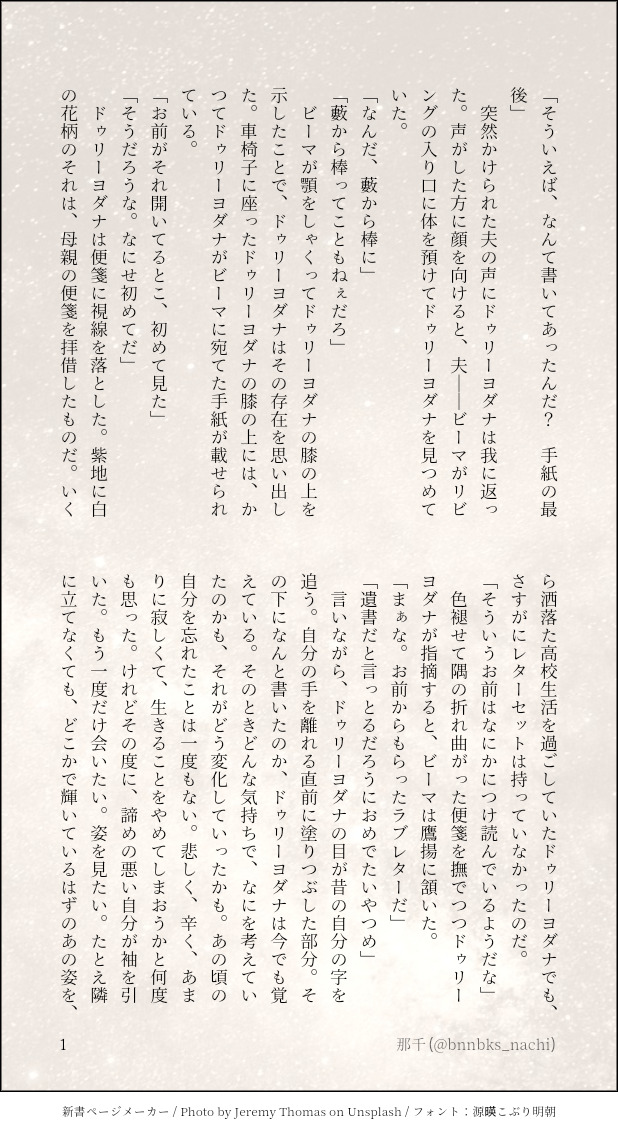 「そういえば、なんて書いてあったんだ？　手紙の最
後」
　突然かけられた夫の声にドゥリーヨダナは我に返っ
た。声がした方に顔を向けると、夫――ビーマがリビ
ングの入り口に体を預けてドゥリーヨダナを見つめて
いた。
「なんだ、藪から棒に」
「藪から棒ってこともねぇだろ」
　ビーマが顎をしゃくってドゥリーヨダナの膝の上を
示したことで、ドゥリーヨダナはその存在を思い出し
た。車椅子に座ったドゥリーヨダナの膝の上には、か
つてドゥリーヨダナがビーマに宛てた手紙が載せられ
ている。
「お前がそれ開いてるとこ、初めて見た」
「そうだろうな。なにせ初めてだ」
　ドゥリーヨダナは便箋に視線を落とした。紫地に白
の花柄のそれは、母親の便箋を拝借したものだ。いく
ら洒落た高校生活を過ごしていたドゥリーヨダナでも、
さすがにレターセットは持っていなかったのだ。
「そういうお前はなにかにつけ読んでいるようだな」
　色褪せて隅の折れ曲がった便箋を撫でつつドゥリー
ヨダナが指摘すると、ビーマは鷹揚に頷いた。
「まぁな。お前からもらったラブレターだ」
「遺書だと言っとるだろうにおめでたいやつめ」
　言いながら、ドゥリーヨダナの目が昔の自分の字を
追う。自分の手を離れる直前に塗りつぶした部分。そ
の下になんと書いたのか、ドゥリーヨダナは今でも覚
えている。そのときどんな気持ちで、なにを考えてい
たのかも、それがどう変化していったかも。あの頃の
自分を忘れたことは一度もない。悲しく、辛く、あま
りに寂しくて、生きることをやめてしまおうかと何度
も思った。けれどその度に、諦めの悪い自分が袖を引
いた。もう一度だけ会いたい。姿を見たい。たとえ隣
に立てなくても、どこかで輝いているはずのあの姿を、
1
那千(@bnnbks_nachi)
新書ページメーカー / Photo by Jeremy Thomas on Unsplash / フォント：源暎こぶり明朝